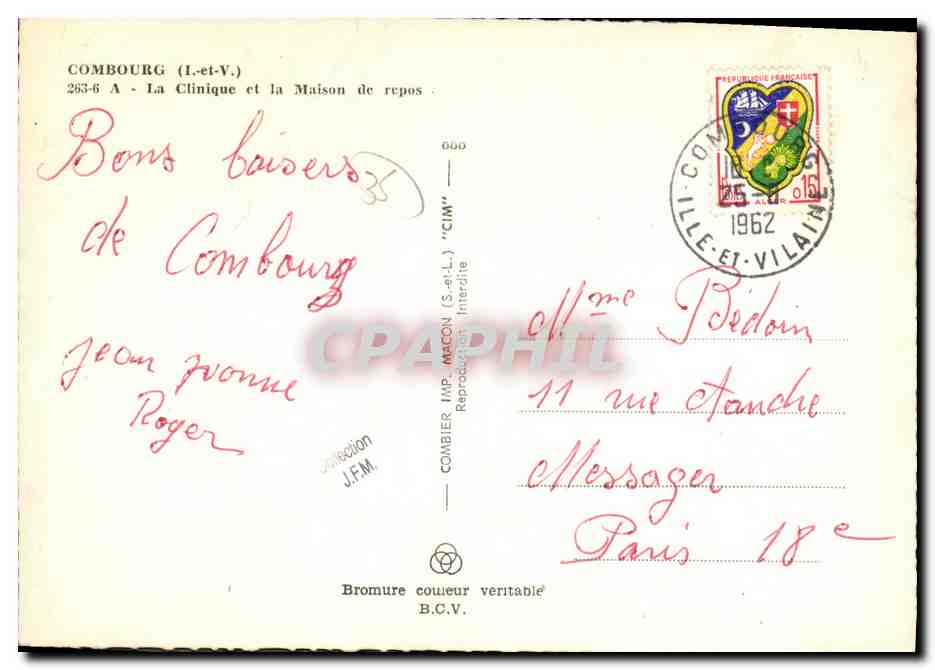 COMBOURG (I.-et-V.)
263-6 A - La Clinique et la Maison de repos
Bons baisers
de Combourg
Jean Yvonne
Roger
35
Collection
J.F.M.
COMBIER IMP. MACON (S.-et-L.) "CIM"
Reproduction Interdite
Bromure couleur veritable
B.C.V.
REPUBLIQUE FRANÇAISE
0,15
ALGER
25-8
1962
ILLE-ET-VILAINE
Mme Bédoin
11 rue Andre
Messager
Paris 18e
CPAPHIL